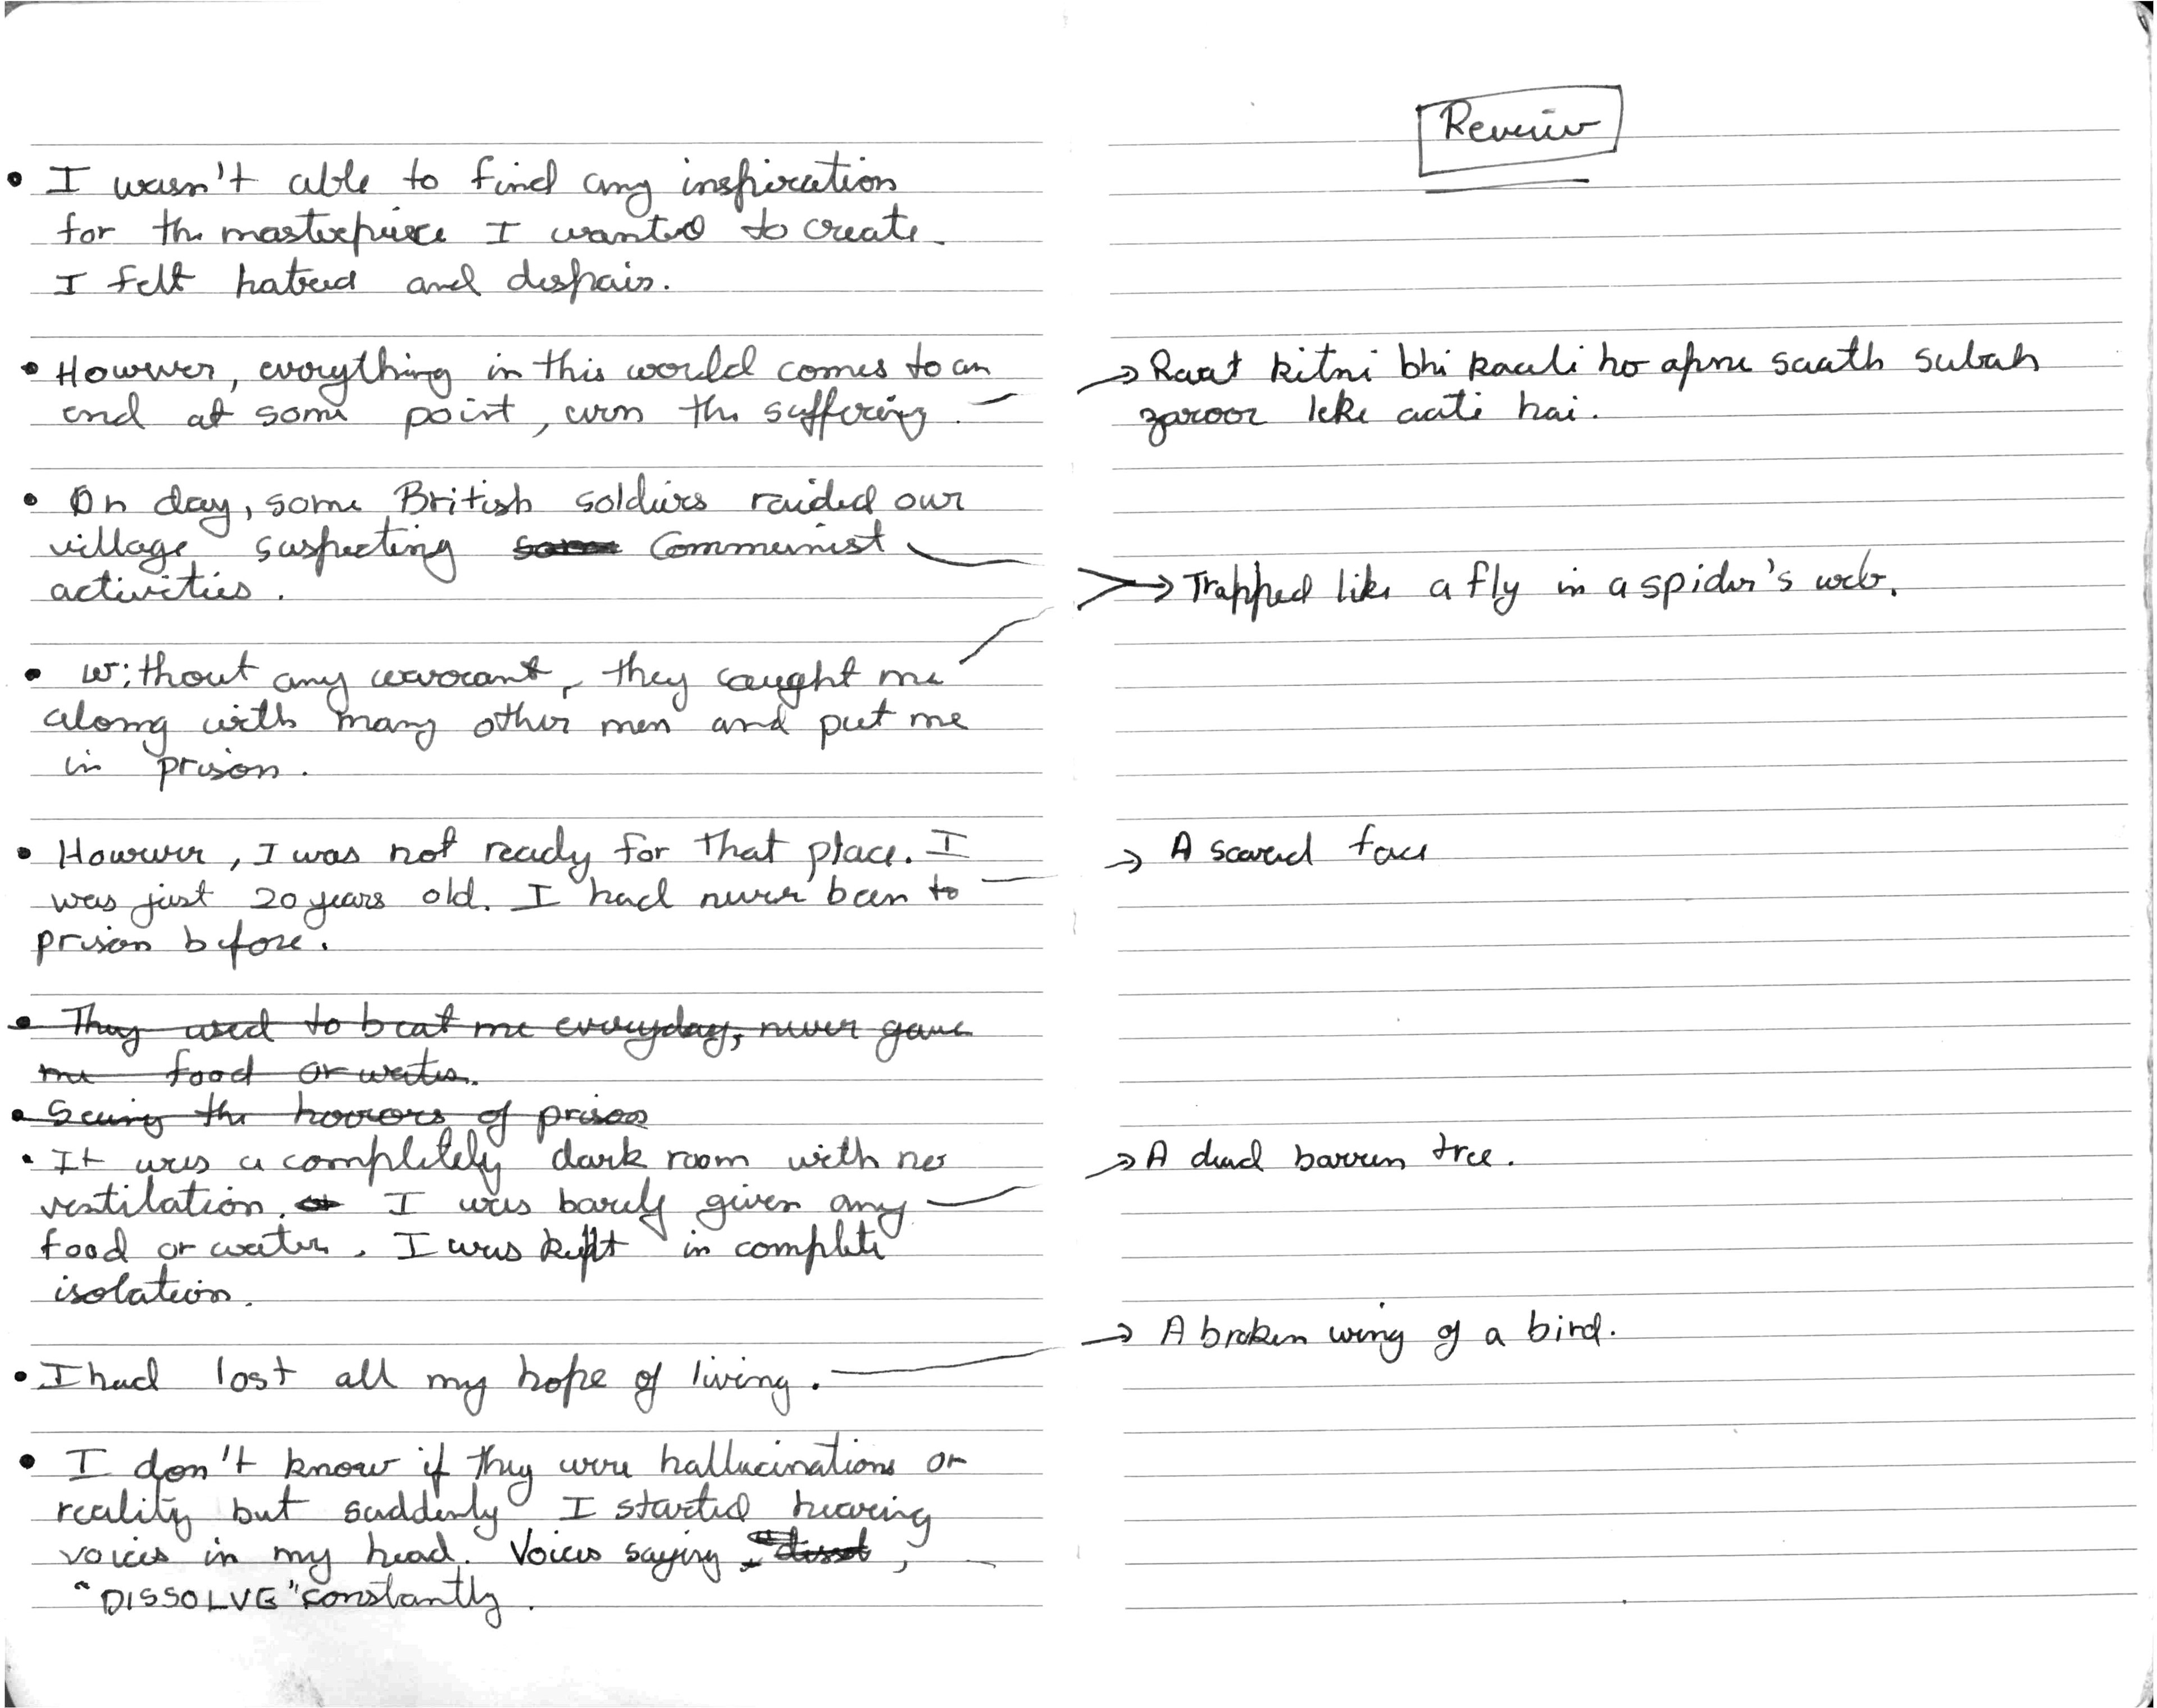 • I wasn't able to find any inspiration
for the masterpiece I wanted to create.
I felt hatred and despair.
• However, everything in this world comes to an
end at some point, even the suffering.
• On day, some British soldiers raided our
village suspecting some Communist
activities.
• Without any warrant, they caught me
along with many other men and put me
in prison.
• However, I was not ready for that place. I
was just 20 years old. I had never been to
prison before.
• They used to beat me everyday, never gave
me food or water.
• Seeing the horrors of prison
• It was a completely dark room with no
ventilation. I was barely given any
food or water. I was kept in complete
isolation.
• I had lost all my hope of living.
• I don't know if they were hallucinations or
reality but suddenly I started hearing
voices in my head. Voices saying ,
"DISSOLVE" constantly.
Review
→ Raat kitni bhi kaali ho apne saath subah
zaroor leke aati hai.
→ Trapped like a fly in a spider's web.
→ A scared face
→ A dead barren tree.
→ A broken wing of a bird.